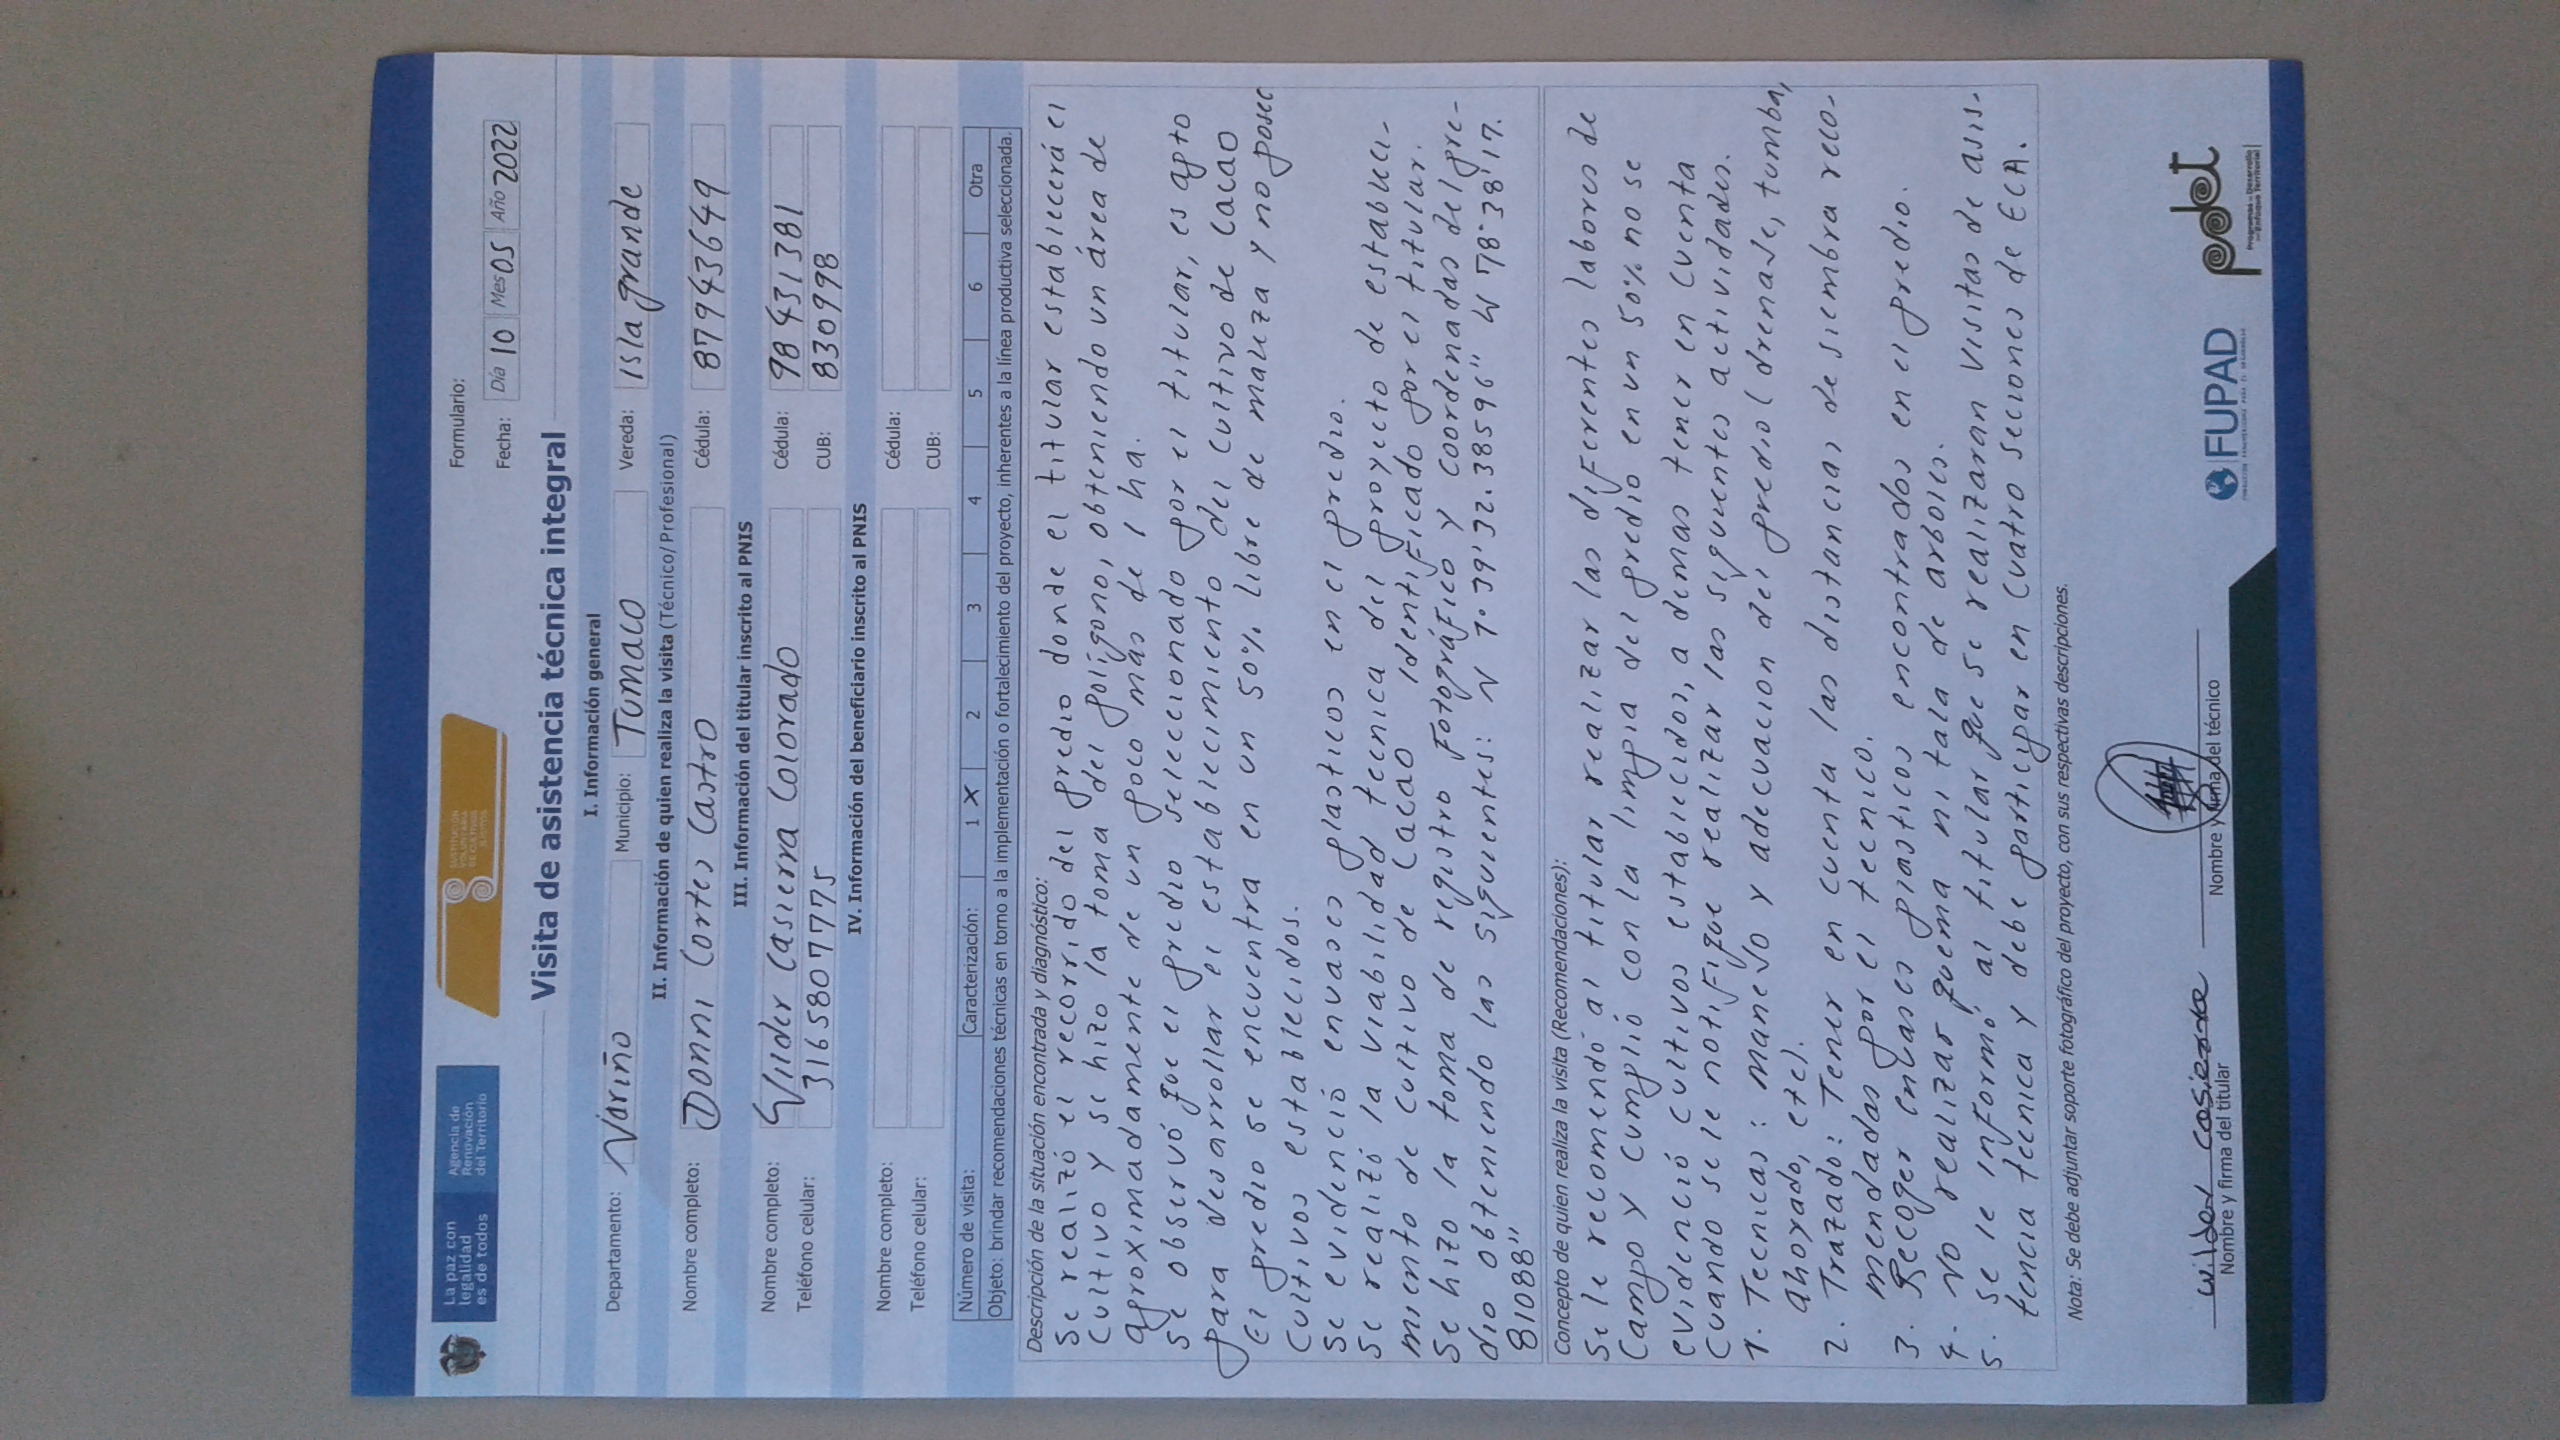 La paz con
legalidad
es de todos
Agencia de
Renovación
del Territorio
SUSTITUCIÓN
VOLUNTARIA
DE CULTIVOS
ILÍCITOS
Formulario:
Fecha: Día 10 Mes 05 Año 2022
Visita de asistencia técnica integral
I. Información general
Departamento: Nariño Municipio: Tumaco Vereda: Isla grande
II. Información de quien realiza la visita (Técnico/ Profesional)
Nombre completo: Donni Cortes Castro Cédula: 87943649
III. Información del titular inscrito al PNIS
Nombre completo: Wilder Casierra Colorado Cédula: 98431381
Teléfono celular: 3165807775 CUB: 830998
IV. Información del beneficiario inscrito al PNIS
Nombre completo: Cédula:
Teléfono celular: CUB:
Número de visita: Caracterización: 1 X 2 3 4 5 6 Otra
Objeto: brindar recomendaciones técnicas en torno a la implementación o fortalecimiento del proyecto, inherentes a la línea productiva seleccionada.
Descripción de la situación encontrada y diagnóstico:
Se realizó el recorrido del predio donde el titular establecerá el
cultivo y se hizo la toma del polígono, obteniendo un área de
aproximadamente de un poco más de 1 ha.
Se observó que el predio seleccionado por el titular, es apto
para desarrollar el establecimiento del cultivo de cacao
El predio se encuentra en un 50% libre de maleza y no posee
cultivos establecidos.
Se evidenció envases plasticos en el predio.
Se realizó la viabilidad tecnica del proyecto de estableci-
miento de cultivo de cacao identificado por el titular.
Se hizo la toma de registro fotográfico y coordenadas del pre-
dio obteniendo las siguientes: N 1°39'32.38596" W 78°38'17.
81088"
Concepto de quien realiza la visita (Recomendaciones):
Se le recomendó al titular realizar las diferentes labores de
campo y cumplió con la limpia del predio en un 50% no se
evidenció cultivos establecidos, a demas tener en cuenta
cuando se le notifique realizar las siguientes actividades.
1. Tecnicas: manejo y adecuacion del predio (drenaje, tumba,
ahoyado, etc).
2. Trazado: Tener en cuenta las distancias de siembra reco-
mendadas por el tecnico.
3. Recoger envases plasticos encontrados en el predio.
4. No realizar quema ni tala de arboles.
5. Se le informó al titular que se realizaran visitas de asis-
tencia tecnica y debe participar en cuatro seciones de ECA.
Nota: Se debe adjuntar soporte fotográfico del proyecto, con sus respectivas descripciones.
wilder casierra
Nombre y firma del titular
Nombre y firma del técnico
FUPAD
pdet
Programas de Desarrollo
con Enfoque Territorial